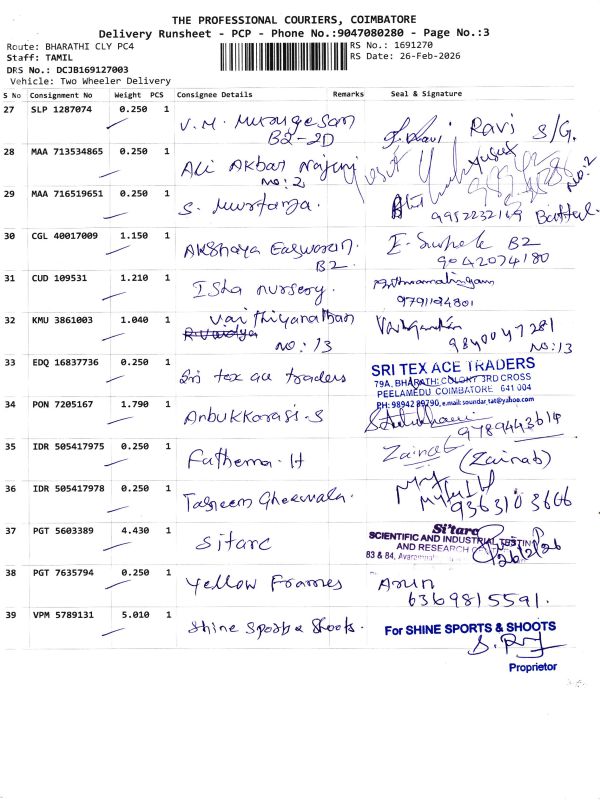 THE PROFESSIONAL COURIERS, COIMBATORE
Delivery Runsheet - PCP - Phone No.:9047080280 - Page No.:3
Route: BHARATHI CLY PC4
RS No.: 1691270
Staff: TAMIL
RS Date: 26-Feb-2026
DRS No.: DCJB169127003
Vehicle: Two Wheeler Delivery
S No Consignment No Weight PCS Consignee Details Remarks Seal & Signature
27 SLP 1287074 0.250 1 V.M. Murugesan Ravi S/G.
B2-2D
28 MAA 713534865 0.250 1 Ali Akbar No.2
No: 2
29 MAA 716519651 0.250 1 S. Murtanja.
9952232169
30 CGL 40017009 1.150 1 Akshaya Easwaran. B2
B2. 9042074180
31 CUD 109531 1.210 1 Isha nursery.
9791124801
32 KMU 3861003 1.040 1 Vaithiyanathan
NO: 13 9840047281
NO:13
33 EDQ 16837736 0.250 1 Sri tex ace traders
SRI TEX ACE TRADERS
79A, BHARATHI COLONY 3RD CROSS
PEELAMEDU COIMBATORE 641 004
PH: 98942 89790, e.mail: soundar_tat@yahoo.com
34 PON 7205167 1.790 1 Anbukkarasi-S
9789443614
35 IDR 505417975 0.250 1 Fathema-H Zainab (Zainab)
36 IDR 505417978 0.250 1 Tasneem Gheewala.
9363103666
37 PGT 5603389 4.430 1 Sitarc
Si'tarc
SCIENTIFIC AND INDUSTRIAL TESTING
AND RESEARCH
83 & 84, 26/2/26
38 PGT 7635794 0.250 1 Yellow Frames Arun
6369815591.
39 VPM 5789131 5.010 1 Shine Sports & Shoots.
For SHINE SPORTS & SHOOTS
Proprietor